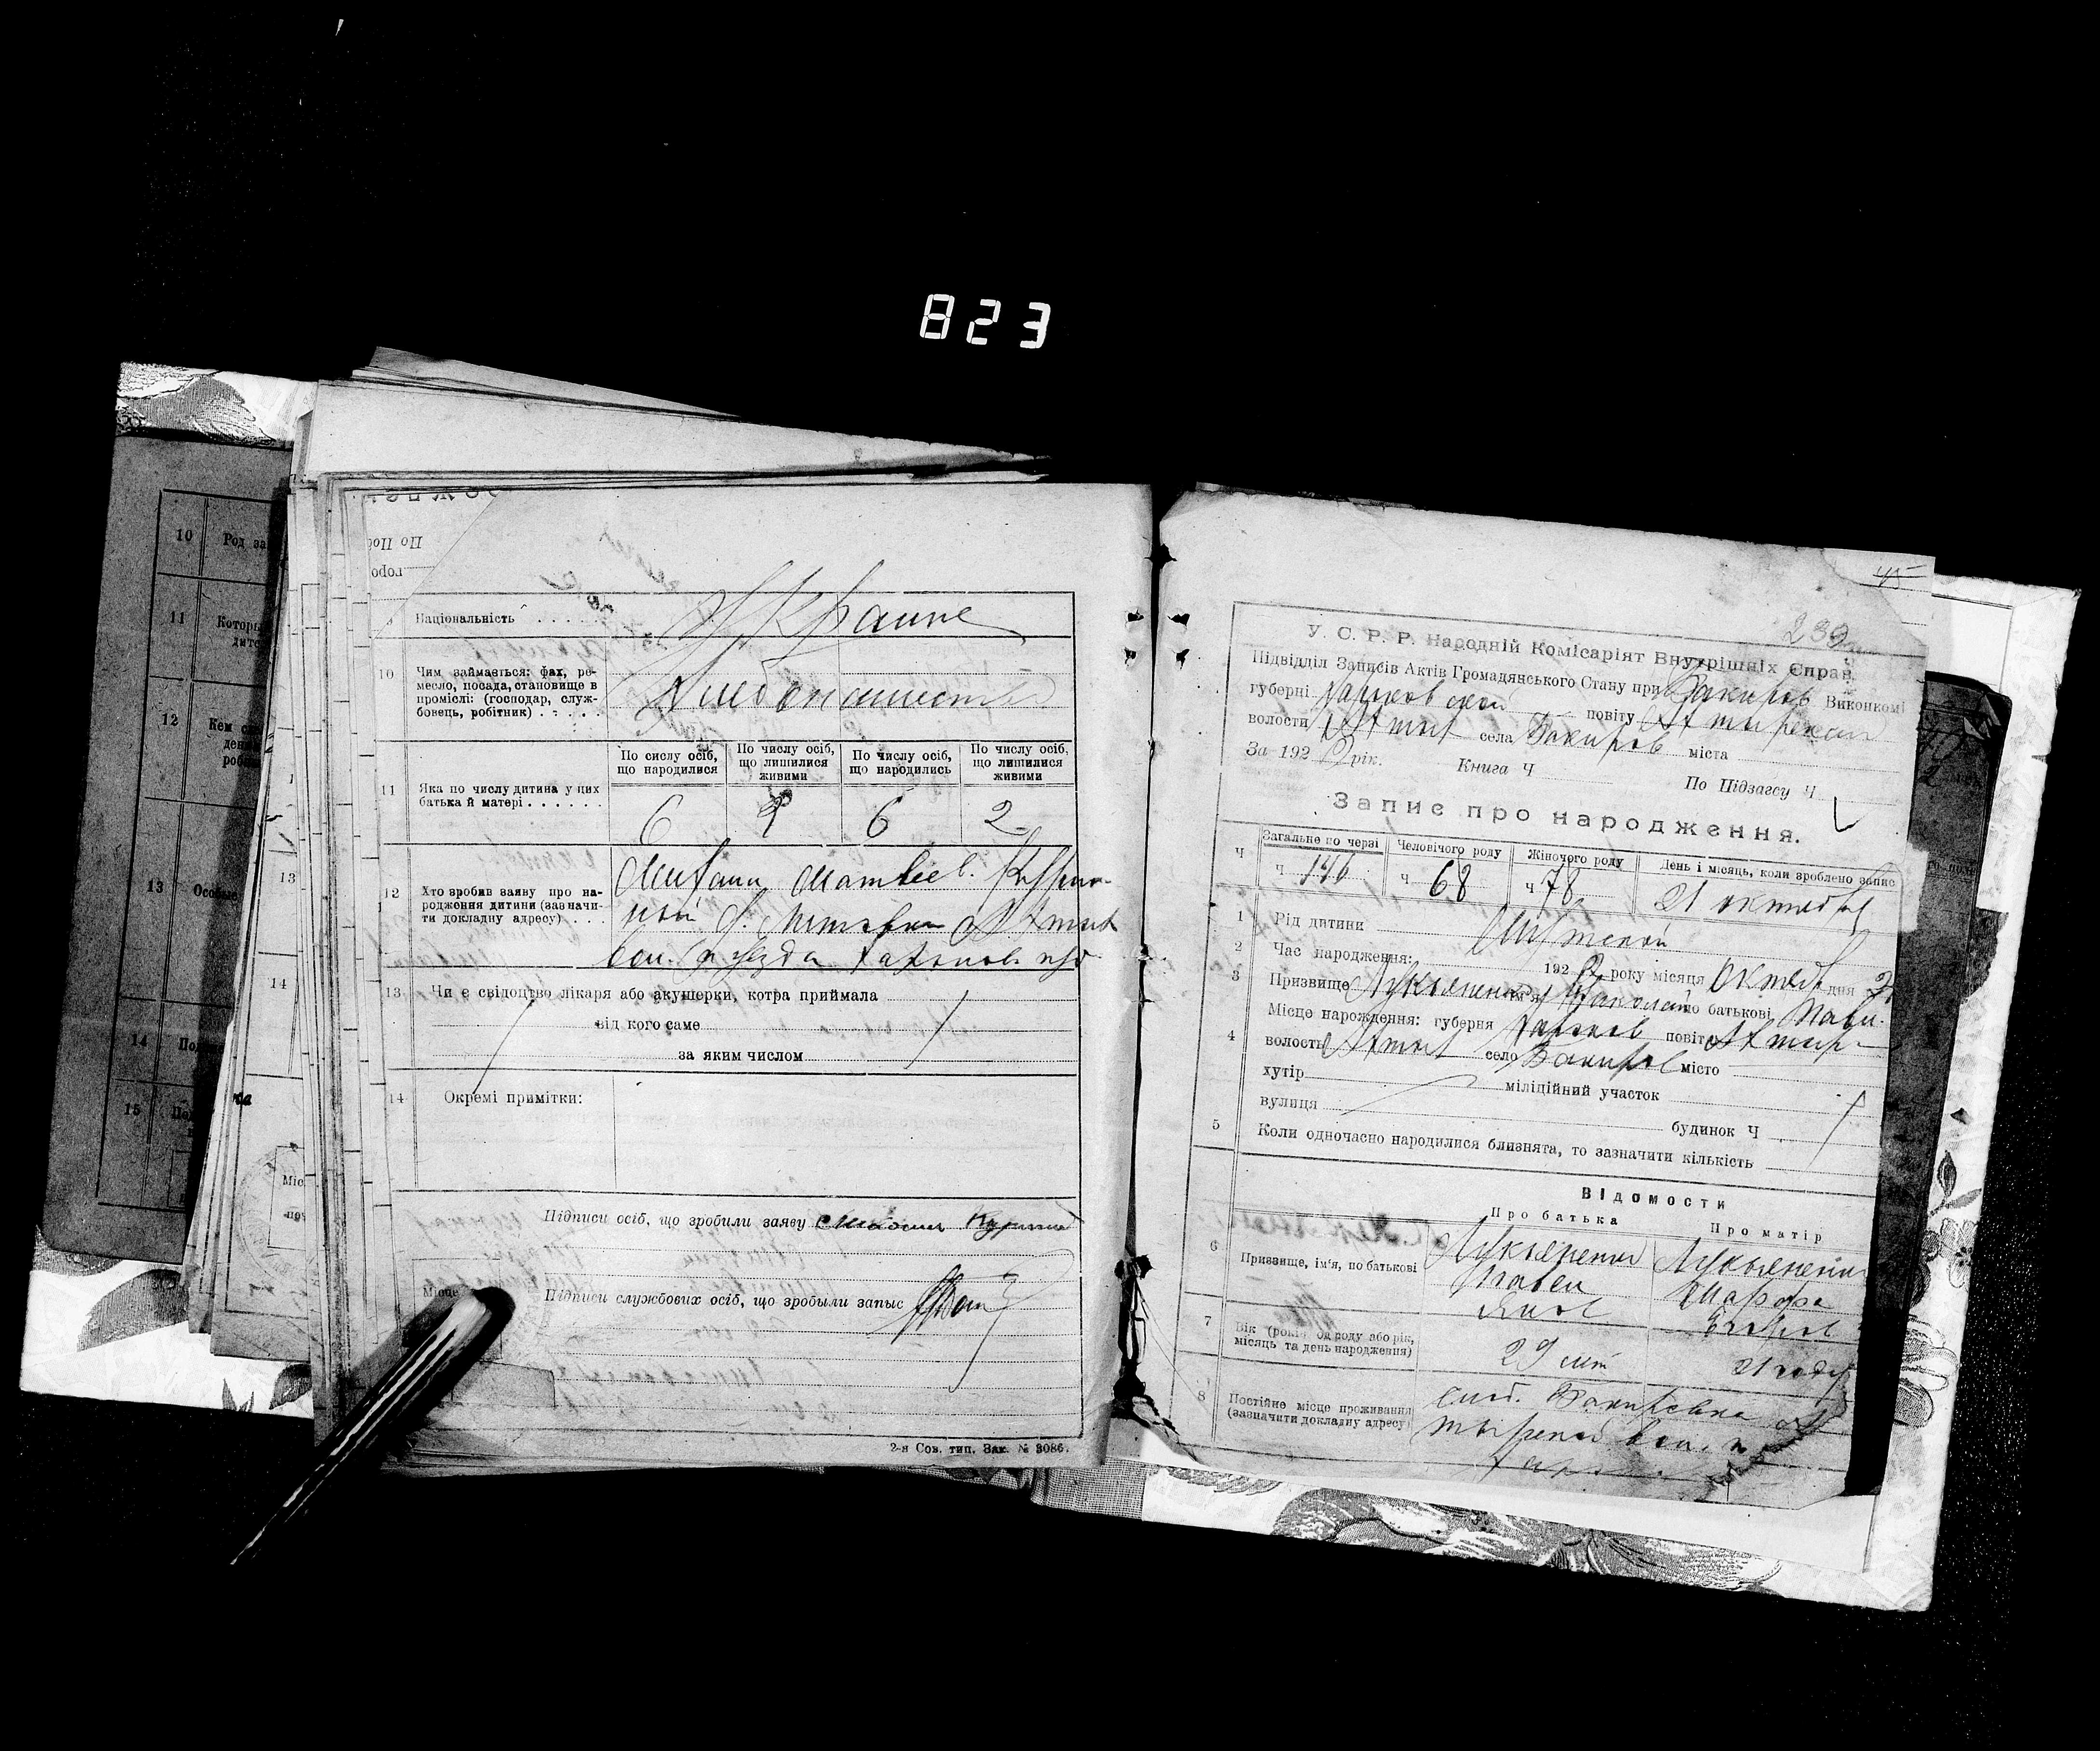 823
10 Род за
11 Которы
дите
12 Кем с
ден
роб
13 Особые
14 По
15 По
13
14
Міс
поч
ка
По Пос
горо
9 Національність . . . . . Украине
10 Чим займається: фах, ре-
месло, посада, становище в
проміслі: (господар, служ-
бовець, робітник) . . . . Хлебопашество
11 Яка по числу дитина у цих
батька й матері . . . . . .
По сислу осіб, що народилися
По числу осіб, що лишилися живими
По числу осіб, що народились
По числу осіб, що лишилися живими
6 2 6 2
12 Хто зробив заяву про на-
родження дитини (зазначи-
ти докладну адресу) . . .
Матвеев.
с. Ахтыр
вол. уезда
13 Чи є свідоцтво лікаря або акушерки, котра приймала
від кого саме
за яким числом
14 Окремі примітки:
Підписи осіб, що зробили заяву
Місце
Підписи службових осіб, що зробыли запыс
2-я Сов. тип. Зак. № 3086.
45
239
У. С. Р. Р. Народній Комісаріят Внутрішніх Справ.
Підвідділ Записів Актів Громадянського Стану при Бакиров Виконкомі
губерні Харьковской повіту Ахтырскаго
волости Ахтыр села Бакиров міста
За 192 2 рік. Книга Ч По Підзагсу Ч
Запис про народження.
Ч Загальне по черзі Человічого роду Жіночого роду День і місяць, коли зроблено запис
Ч 146 Ч 68 Ч 78 21 октября
1 Рід дитини Мужской
2 Час народження: 192 2 року місяця Октяб дня
3 Призвище Лукьяненко ім'я Николай по батькові Павл.
4 Місце нарождення: губерня Харьков повіт Ахтыр
волость Ахтыр село Бакиров місто
хутір міліційний участок
вулиця будинок Ч
5 Коли одночасно народилися близнята, то зазначити кількість
Відомости
Про батька Про матір
6 Призвище, ім'я, по батькові
Лукьяненко
Павел
Яков
Лукьяненко
Марфа
Егоров
7 Вік (років од роду або рік,
місяць та день народження) 29 лет 21 году
8 Постійне місце проживання
(зазначити докладну адресу)
слоб. Бакировка Ах
тырской вол.